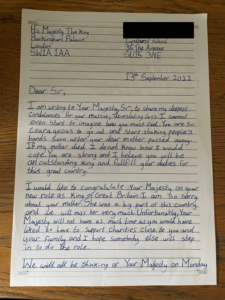 His Majesty The King
Buckingham Palace
London
SW1A 1AA
School
The Avenue
3NE
13th September 2022
Dear Sir,
I am writing to Your Majesty Sir, to share my deepest
condolences for your massive, devastating loss. I cannot
even start to imagine how you must feel. You are so
courageous to go out and start shaking people's
hands soon after your dear mother passed away.
If my mother died I do not know how I would
cope. You are strong and I believe you will be
an outstanding King and fulfill your duties for
this great country.
I would like to congratulate Your Majesty on your
new role as King of Great Britain. I am so sorry
about your mother. She was a big part of this country
and we will miss her very much. Unfortunately, Your
Majesty will not have as much time as you would have
liked to have to support charities close to you and
your family and I hope somebody else will step
in to do the role.
We will all be thinking of Your Majesty on Monday